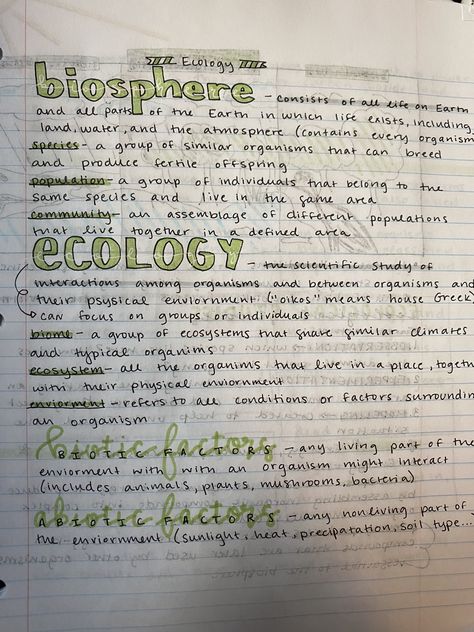 Ecology
biosphere - consists of all life on Earth
and all parts of the Earth in which life exists, including
land, water, and the atmosphere (contains every organism
species - a group of similar organisms that can breed
and produce fertile offspring
population - a group of individuals that belong to the
same species and live in the same area
community - an assemblage of different populations
that live together in a defined area
ECOLOGY - the scientific study of
interactions among organisms and between organisms and
their psysical enviornment ("oikos" means house Greek
can focus on groups or individuals
biome - a group of ecosystems that share similar climates
and typical organims
ecosystem - all the organims that live in a place, togeth
with their physical enviornment
enviorment - refers to all conditions or factors surroundin
an organism
biotic factors
BIOTIC FACTORS - any living part of the
enviorment with with an organism might interact
(includes animals, plants, mushrooms, bacteria)
abiotic factors
ABIOTIC FACTORS - any nonliving part of
the enviornment (sunlight, heat, precipatation, soil type...